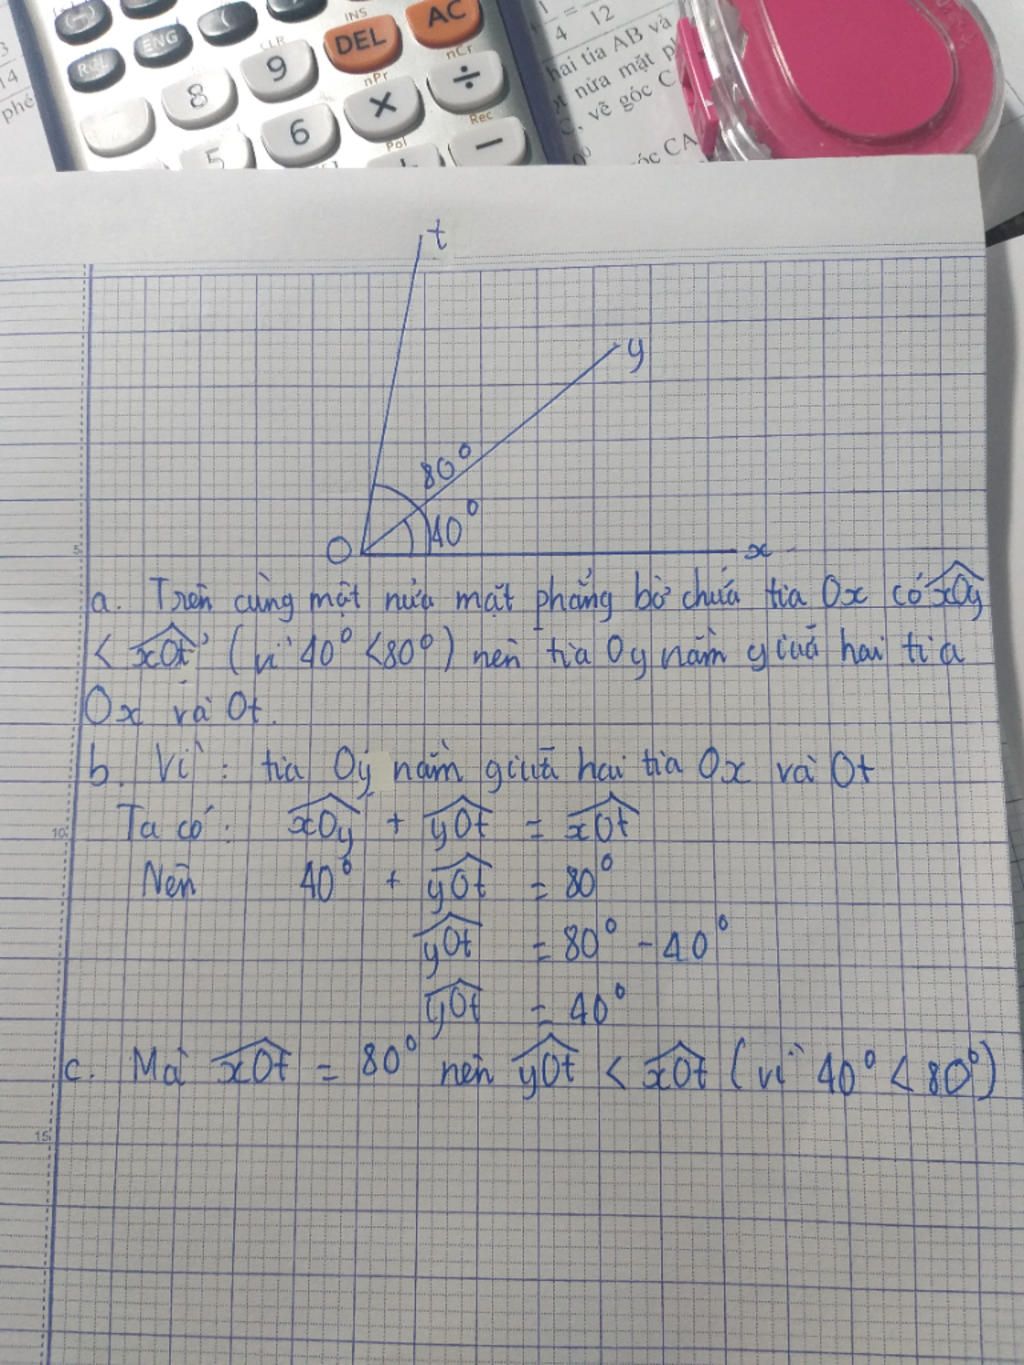 INS
DEL
AC
ENG
RCL
CLR
9
nPr
nCr
8
×
÷
6
Pol
Rec
5
−
14
phé
1
4
=
12
hai tia AB và
nửa mặt
vẽ góc C
óc CA
t
y
80°
40°
O
x
a. Trên cùng một nửa mặt phẳng bờ chứa tia Ox có xOy
< xOt (vì 40° < 80°) nên tia Oy nằm giữa hai tia
Ox và Ot.
b. Vì: tia Oy nằm giữa hai tia Ox và Ot
Ta có: xOy + yOt = xOt
Nên 40° + yOt = 80°
yOt = 80° - 40°
yOt = 40°
c. Mà xOt = 80° nên yOt < xOt (vì 40° < 80°)
5
10
15